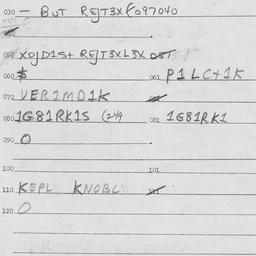 030 — BUT REJT3X£097040
050 XOJD1S+ REJT3XL3X OST
060 $ 061 P1LC+1K
070 VER1MD1K
080 1G81RK1S (249 081 1G81RK1
090 O
100 101
110 KEPL KNOBL 111
120 O